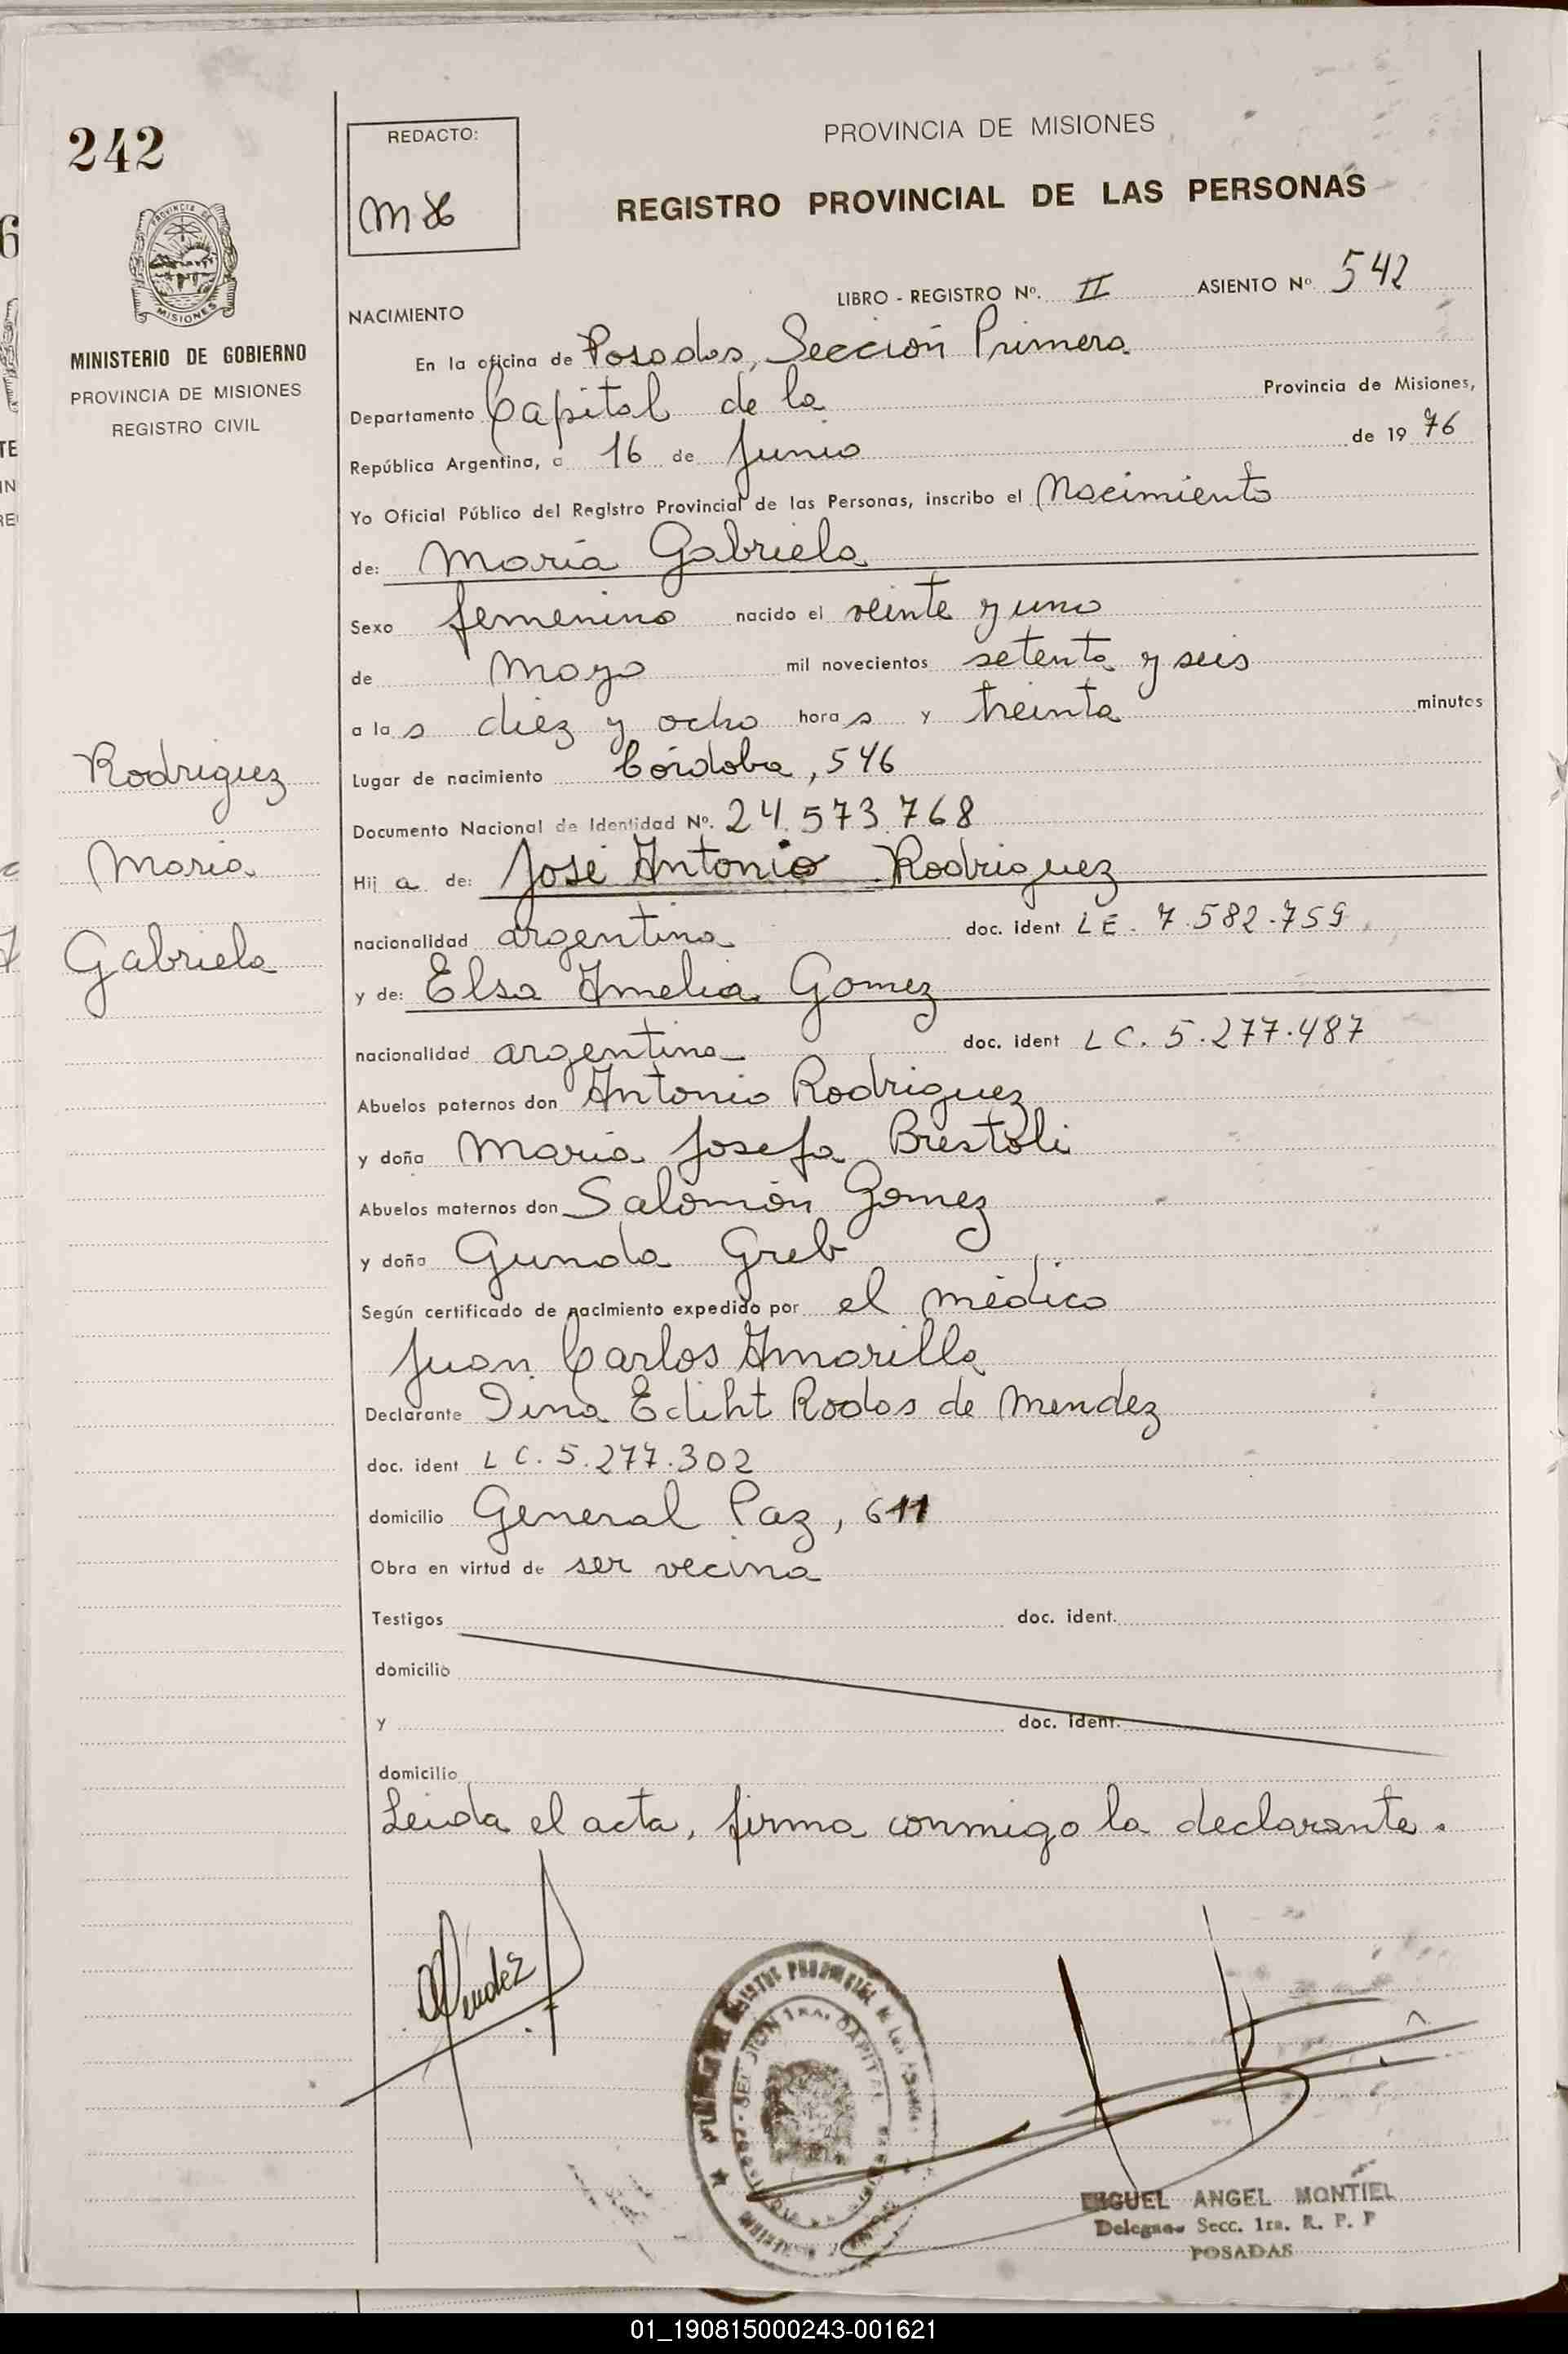 242
REDACTO:
PROVINCIA DE MISIONES
REGISTRO PROVINCIAL DE LAS PERSONAS
PROVINCIA DE
MISIONES
MINISTERIO DE GOBIERNO
PROVINCIA DE MISIONES
REGISTRO CIVIL
LIBRO - REGISTRO Nº. II ASIENTO Nº 542
NACIMIENTO
En la oficina de Posadas, Sección Primera
Departamento Capital de la Provincia de Misiones,
República Argentina, a 16 de Junio de 1976
Yo Oficial Público del Registro Provincial de las Personas, inscribo el Nacimiento
de: María Gabriela
Sexo femenino nacido el veinte y uno
de Mayo mil novecientos setenta y seis
a las diez y ocho horas y treinta minutos
Lugar de nacimiento Córdoba, 546
Documento Nacional de Identidad Nº. 24.573.768
Hija de: José Antonio Rodriguez
nacionalidad argentina doc. ident LE. 7.582.759
y de: Elsa Amelia Gomez
nacionalidad argentina doc. ident LC. 5.277.487
Abuelos paternos don Antonio Rodriguez
y doña María Josefa Brestoli
Abuelos maternos don Salomón Gomez
y doña Gunda Greb
Según certificado de nacimiento expedido por el médico
Juan Carlos Amarilla
Declarante Ediht Rodas de Mendez
doc. ident LC. 5.277.302
domicilio General Paz, 611
Obra en virtud de ser vecina
Testigos doc. ident.
domicilio
y doc. ident.
domicilio
Leida el acta, firma conmigo la declarante.
Rodriguez
María
Gabriela
Méndez
MIGUEL ANGEL MONTIEL
Delegado Secc. 1ra. R. P. P
POSADAS
01_190815000243-001621